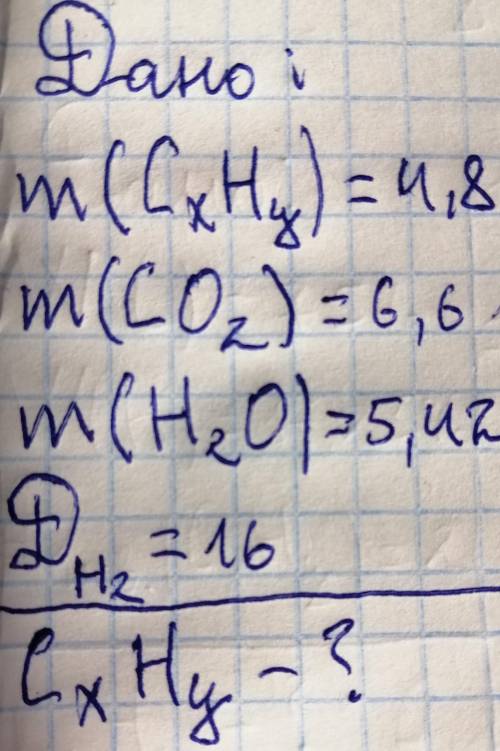 Дано:
m(CxHy)=4,8
m(CO2)=6,6
m(H2O)=5,4г
DH2=16
CxHy-?